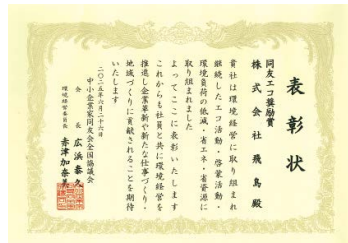 表彰状
同友エコ奨励賞
株式会社飛鳥殿
貴社は環境経営に取り組まれ
継続したエコ活動・啓蒙活動・
環境負荷の低減・省エネ・省資源に
取り組まれました
よってここに表彰いたします
これからも社員と共に環境経営を
推進し企業革新や新たな仕事づくり・
地域づくりに貢献されることを期待
いたします
二〇二五年六月二十六日
中小企業家同友会全国協議会
会長 広浜泰久
環境経営委員長 赤津加奈美